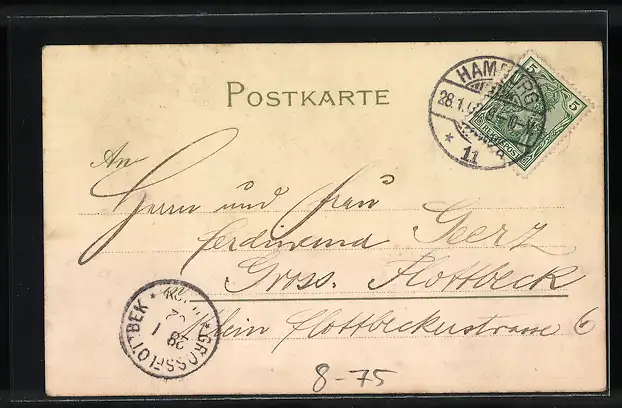 POSTKARTE
HAMBURG
28.1.02
* 11
5
5
REICHSPOST
An
Herrn und Frau
Ferdinand Gerz
Gross. Flottbeck
Klein Flottbeckerstrasse 6
GROSSFLOTTBEK *
28 1
02
8-75